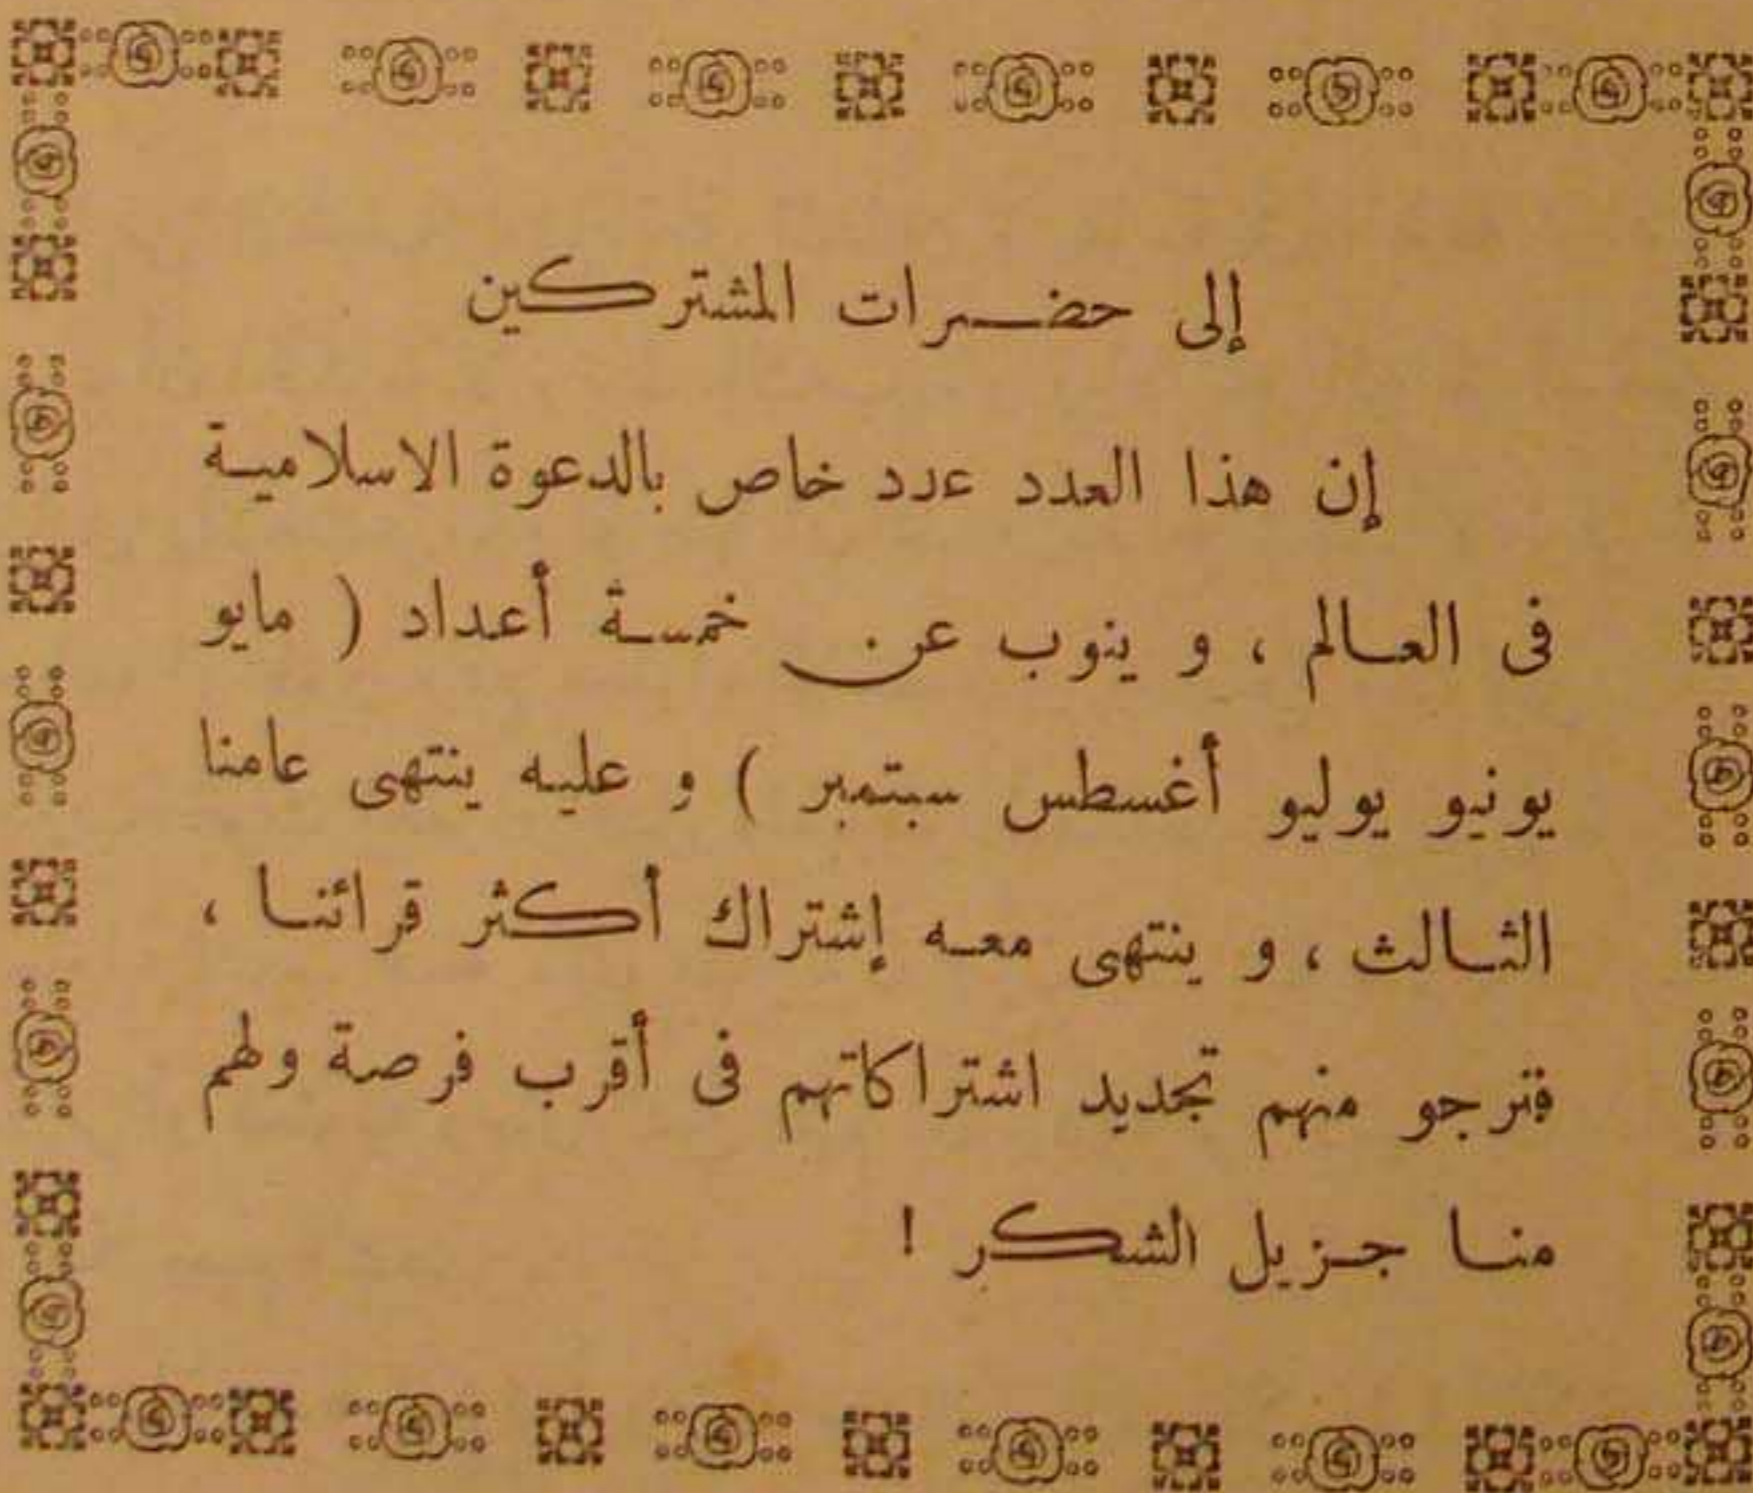 إلى حضرات المشتركين
إن هذا العدد عدد خاص بالدعوة الاسلامية
فى العالم ، و ينوب عن خمسة أعداد ( مايو
يونيو يوليو أغسطس سبتمبر ) و عليه ينتهى عامنا
الثالث ، و ينتهى معه إشتراك أكثر قرائنا ،
فنرجو منهم تجديد اشتراكاتهم فى أقرب فرصة ولهم
منا جزيل الشكر !